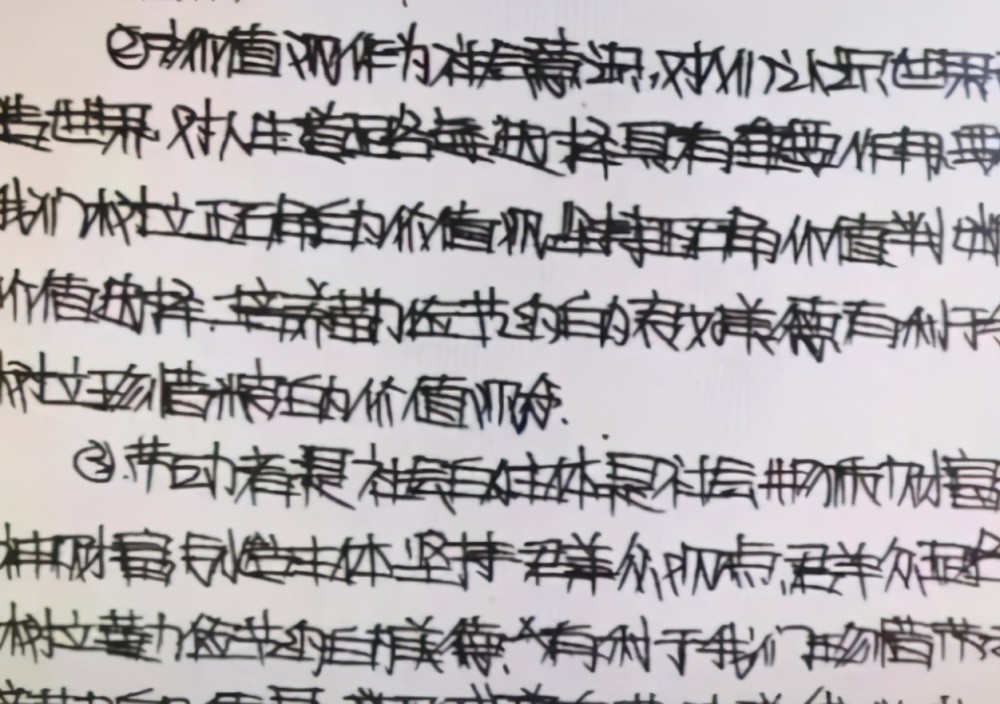 ②价值观作为社会意识,对人们认识世界
造世界,对人生道路的选择具有重要作用,要
我们树立正确的价值观,坚持正确价值判断
价值选择.培养勤俭节约的良好美德有利于
树立珍惜粮食的价值观念.
③劳动者是社会的主体是社会物质财富
神财富的创造主体.坚持群众观点,群众路
树立勤俭节约的美德,有利于我们珍惜劳